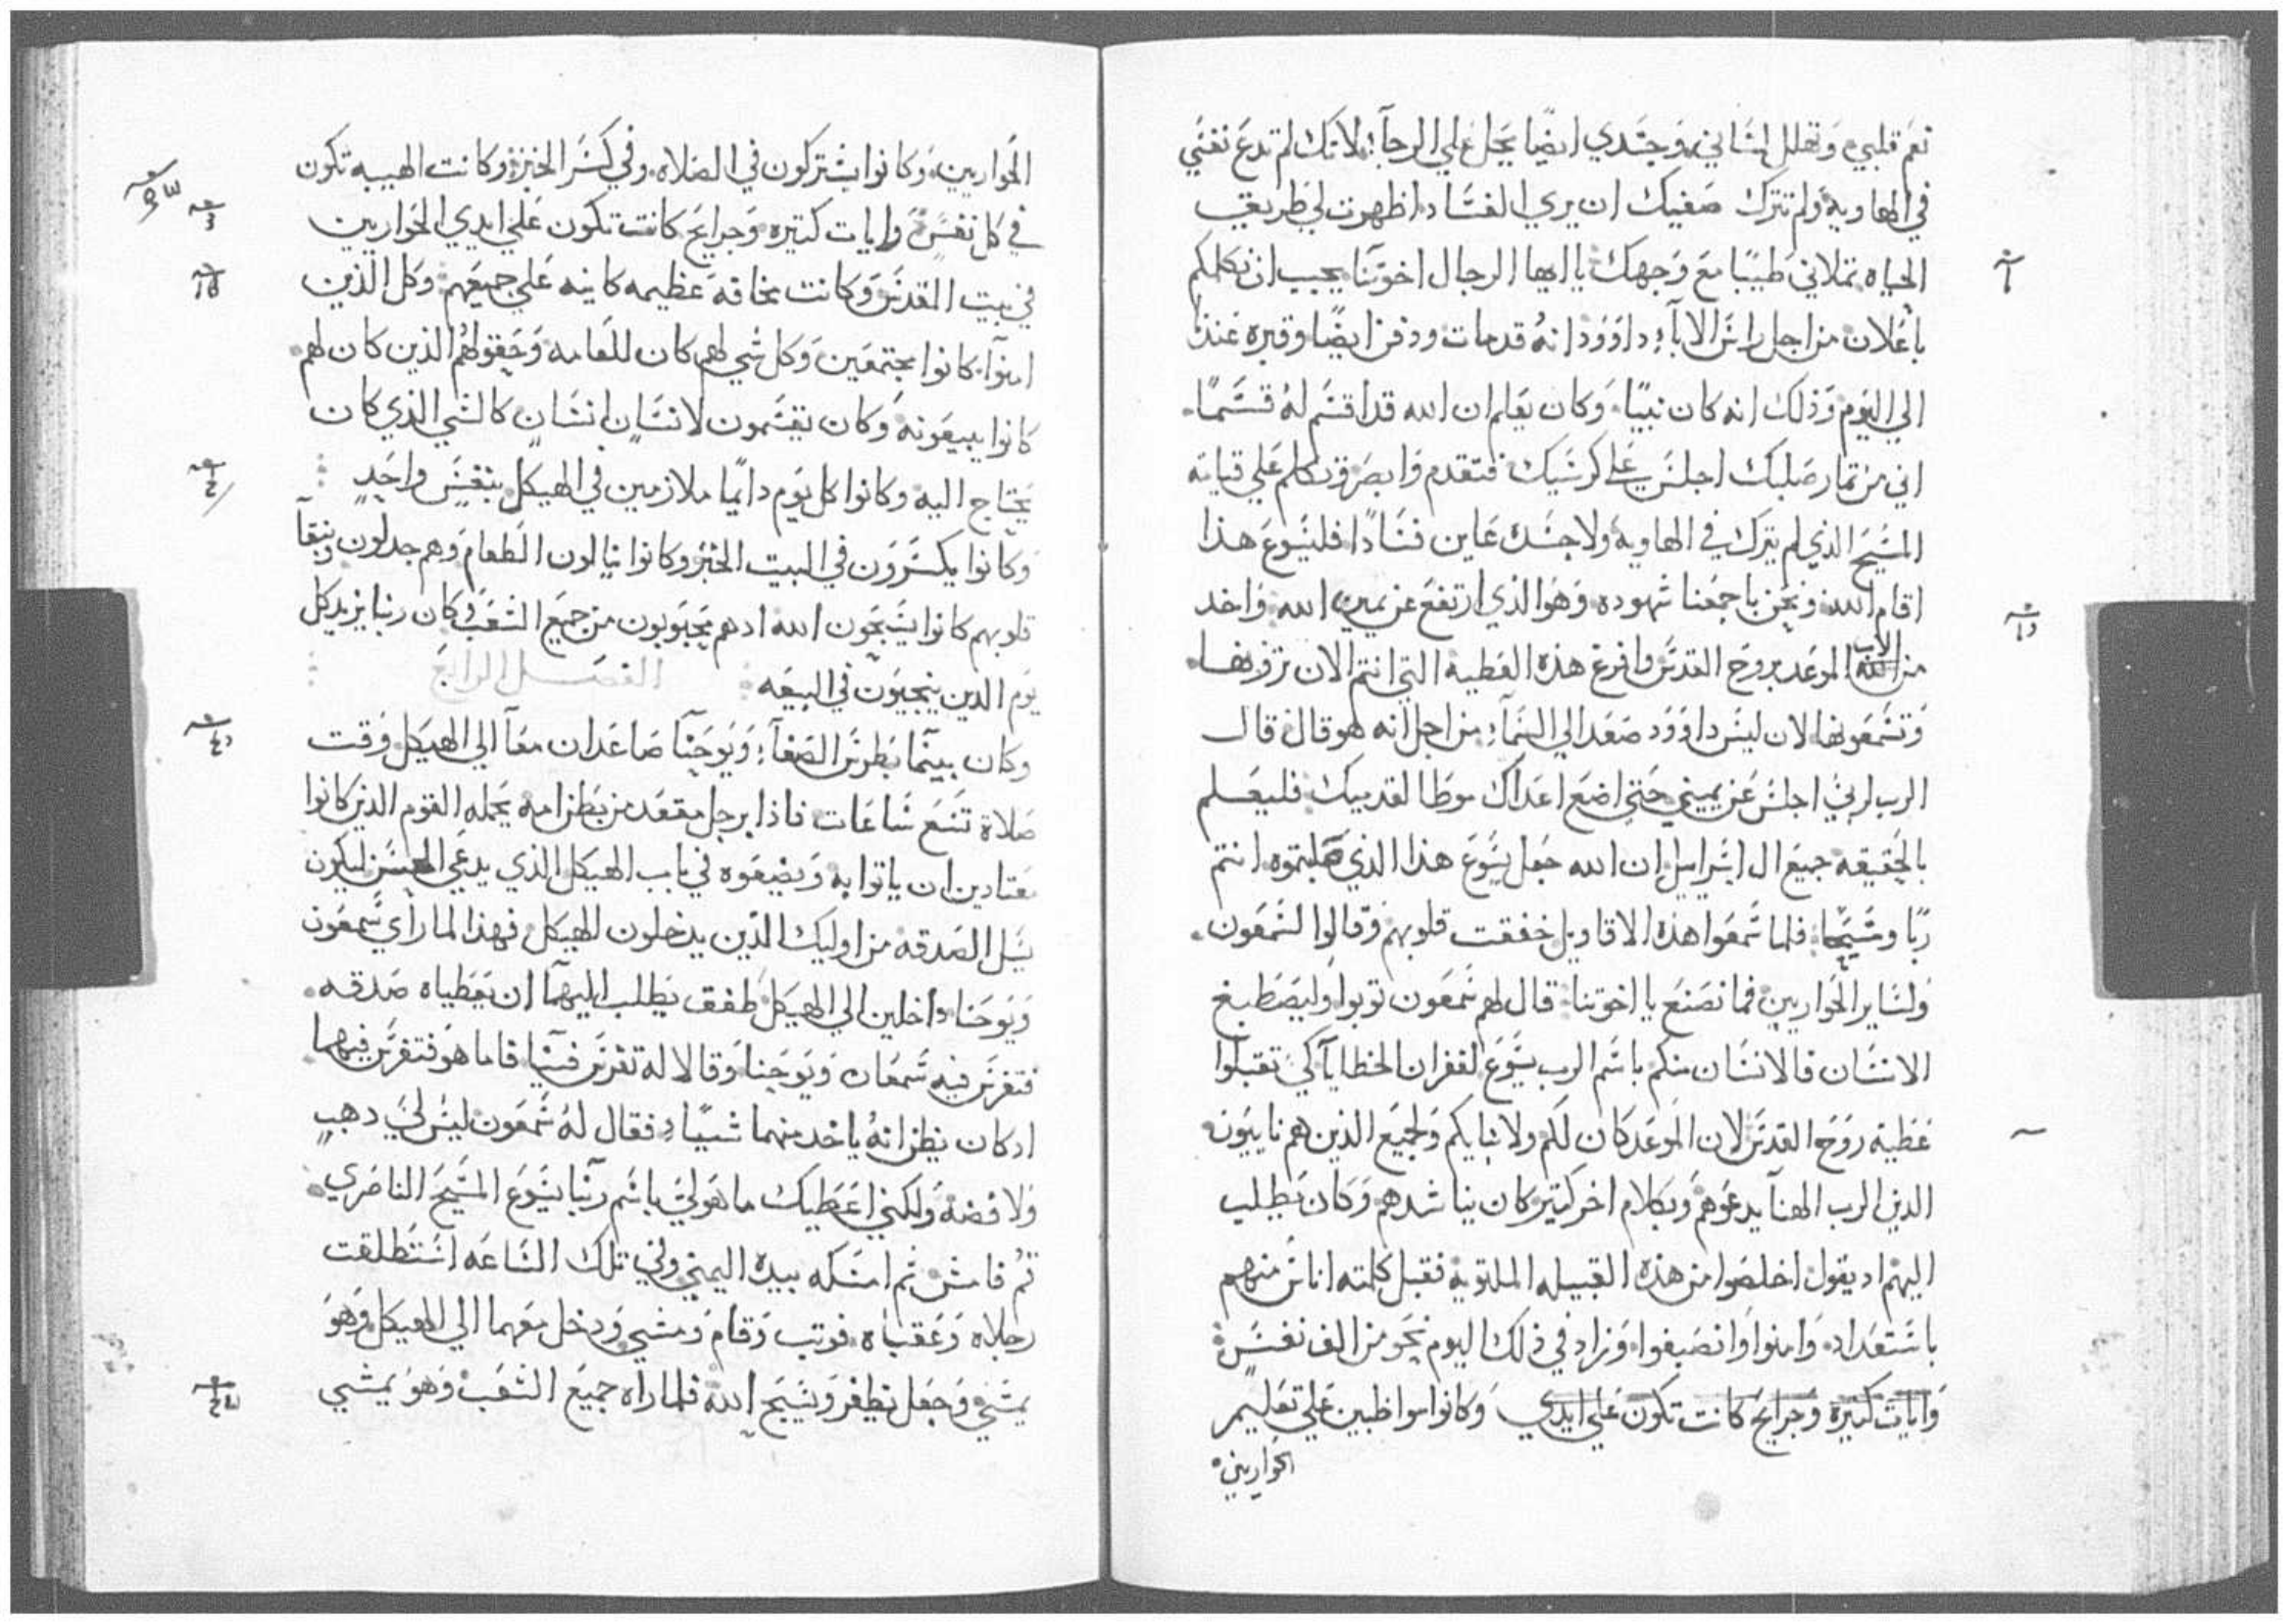 نعم قلبي وتهلل لساني وجسدي ايضا يحل علي الرجآ لانك لم تدع نفسي
في الهاويه ولم تترك صفيك ان يري الفساد اظهرت لي طريق
الحياه تملاني طيبا مع وجهك يا ايها الرجال اخوتنا يجب ان نكلمكم
باعلان من اجل راس الابآ داوود انه قد مات ودفن ايضا وقبره عندنا
الي اليوم وذلك انه كان نبيا وكان يعلم ان الله قد اقسم له قسما
اني من تمار صلبك اجلس علي كرسيك فتقدم وابصر وتكلم علي قيامة
المسيح الذي لم يترك في الهاويه ولا جسده عاين فسادا فليسوع هذا
اقام الله ونحن باجمعنا شهوده وهو الذي ارتفع عن يمين الله واخد
من الاب الموعد بروح القدس وافرغ هذه العطيه التي انتم الان ترونها
وتسمعونها لان ليس داوود صعد الي السمآ من اجل انه هو قال قال
الرب لربي اجلس عن يميني حتي اضع اعداك موطا لقدميك فليعلم
بالحقيقه جميع ال اسراييل ان الله جعل يسوع هذا الذي صلبتموه انتم
ربا ومسيحا فلما سمعوا هذه الاقاويل خفقت قلوبهم وقالوا لسمعون
ولساير الحواريين فما نصنع يا اخوتنا قال لهم سمعون توبوا وليصطبغ
الانسان فالانسان منكم باسم الرب يسوع لغفران الخطايآ كي تقبلوا
عطية روح القدس لان الموعد كان لكم ولابنايكم ولجميع الذين هم نايبون
الذين الرب الهنا يدعوهم وبكلام اخر كتير كان يناشدهم وكان يطلب
اليهم اد يقول اخلصوا من هذه القبيله الملتويه فقبل كلمته اناس منهم
باستعداد وامنوا وانصبغوا وزاد في ذلك اليوم نحو من الف نفس
وايات كتيره وجرايح كانت تكون علي ايدي وكانوا مواظبين علي تعليم
الحواريين
الحواريين وكانوا يشتركون في الصلاه وفي كسر الخبز وكانت الهيبه تكون
في كل نفس وايات كتيره وجرايح كانت تكون علي ايدي الحواريين
في بيت المقدس وكانت مخافه عظيمه كاينه علي جميعهم وكل الذين
امنوآ كانوا مجتمعين وكل شي لهم كان للعامه وحقولهم الذين كان لهم
كانوا يبيعونه وكان يقسمون لانسان انسان كالشي الذي كان
يحتاج اليه وكانوا كل يوم دايما ملازمين في الهيكل بنفس واحد
وكانوا يكسرون في البيت الخبز وكانوا ينالون الطعام وهم جدلون وبنقآ
قلوبهم كانوا يسبحون الله ادهم محبوبون من جميع الشعب وكان ربنا يزيد كل
يوم الدين ينجيون في البيعه الفصل الرابع
وكان بينما بطرس الصفآ ويوحنآ صاعدان معآ الي الهيكل وقت
صلاة تسع ساعات فاذا برجل مقعد من بطن امه يحمله القوم الذين كانوا
معتادين ان ياتوا به ويضعوه في باب الهيكل الذي يدعي الحسن ليكون
يسل الصدقه من اوليك الذين يدخلون الهيكل فهذا لما راي سمعون
ويوحنا داخلين الي الهيكل طفق يطلب اليهمآ ان يعطياه صدقه
فتفرس فيه سمعان ويوحنا وقالا له تفرس فينا فاما هو فتفرس فيهما
ادكان يظن انه ياخد منهما شيا فقال له سمعون ليس لي دهب
ولا فضه ولكني اعطيك ما هو لي باسم ربنا يسوع المسيح الناصري
قم فامش ثم امسكه بيده اليمني وفي تلك الساعه استطلقت
رجلاه وعقباه فوتب وقام ومشي ودخل معهما الي الهيكل وهو
يمشي وجعل يطفر ويسبح الله فلما راه جميع الشعب وهو يمشي